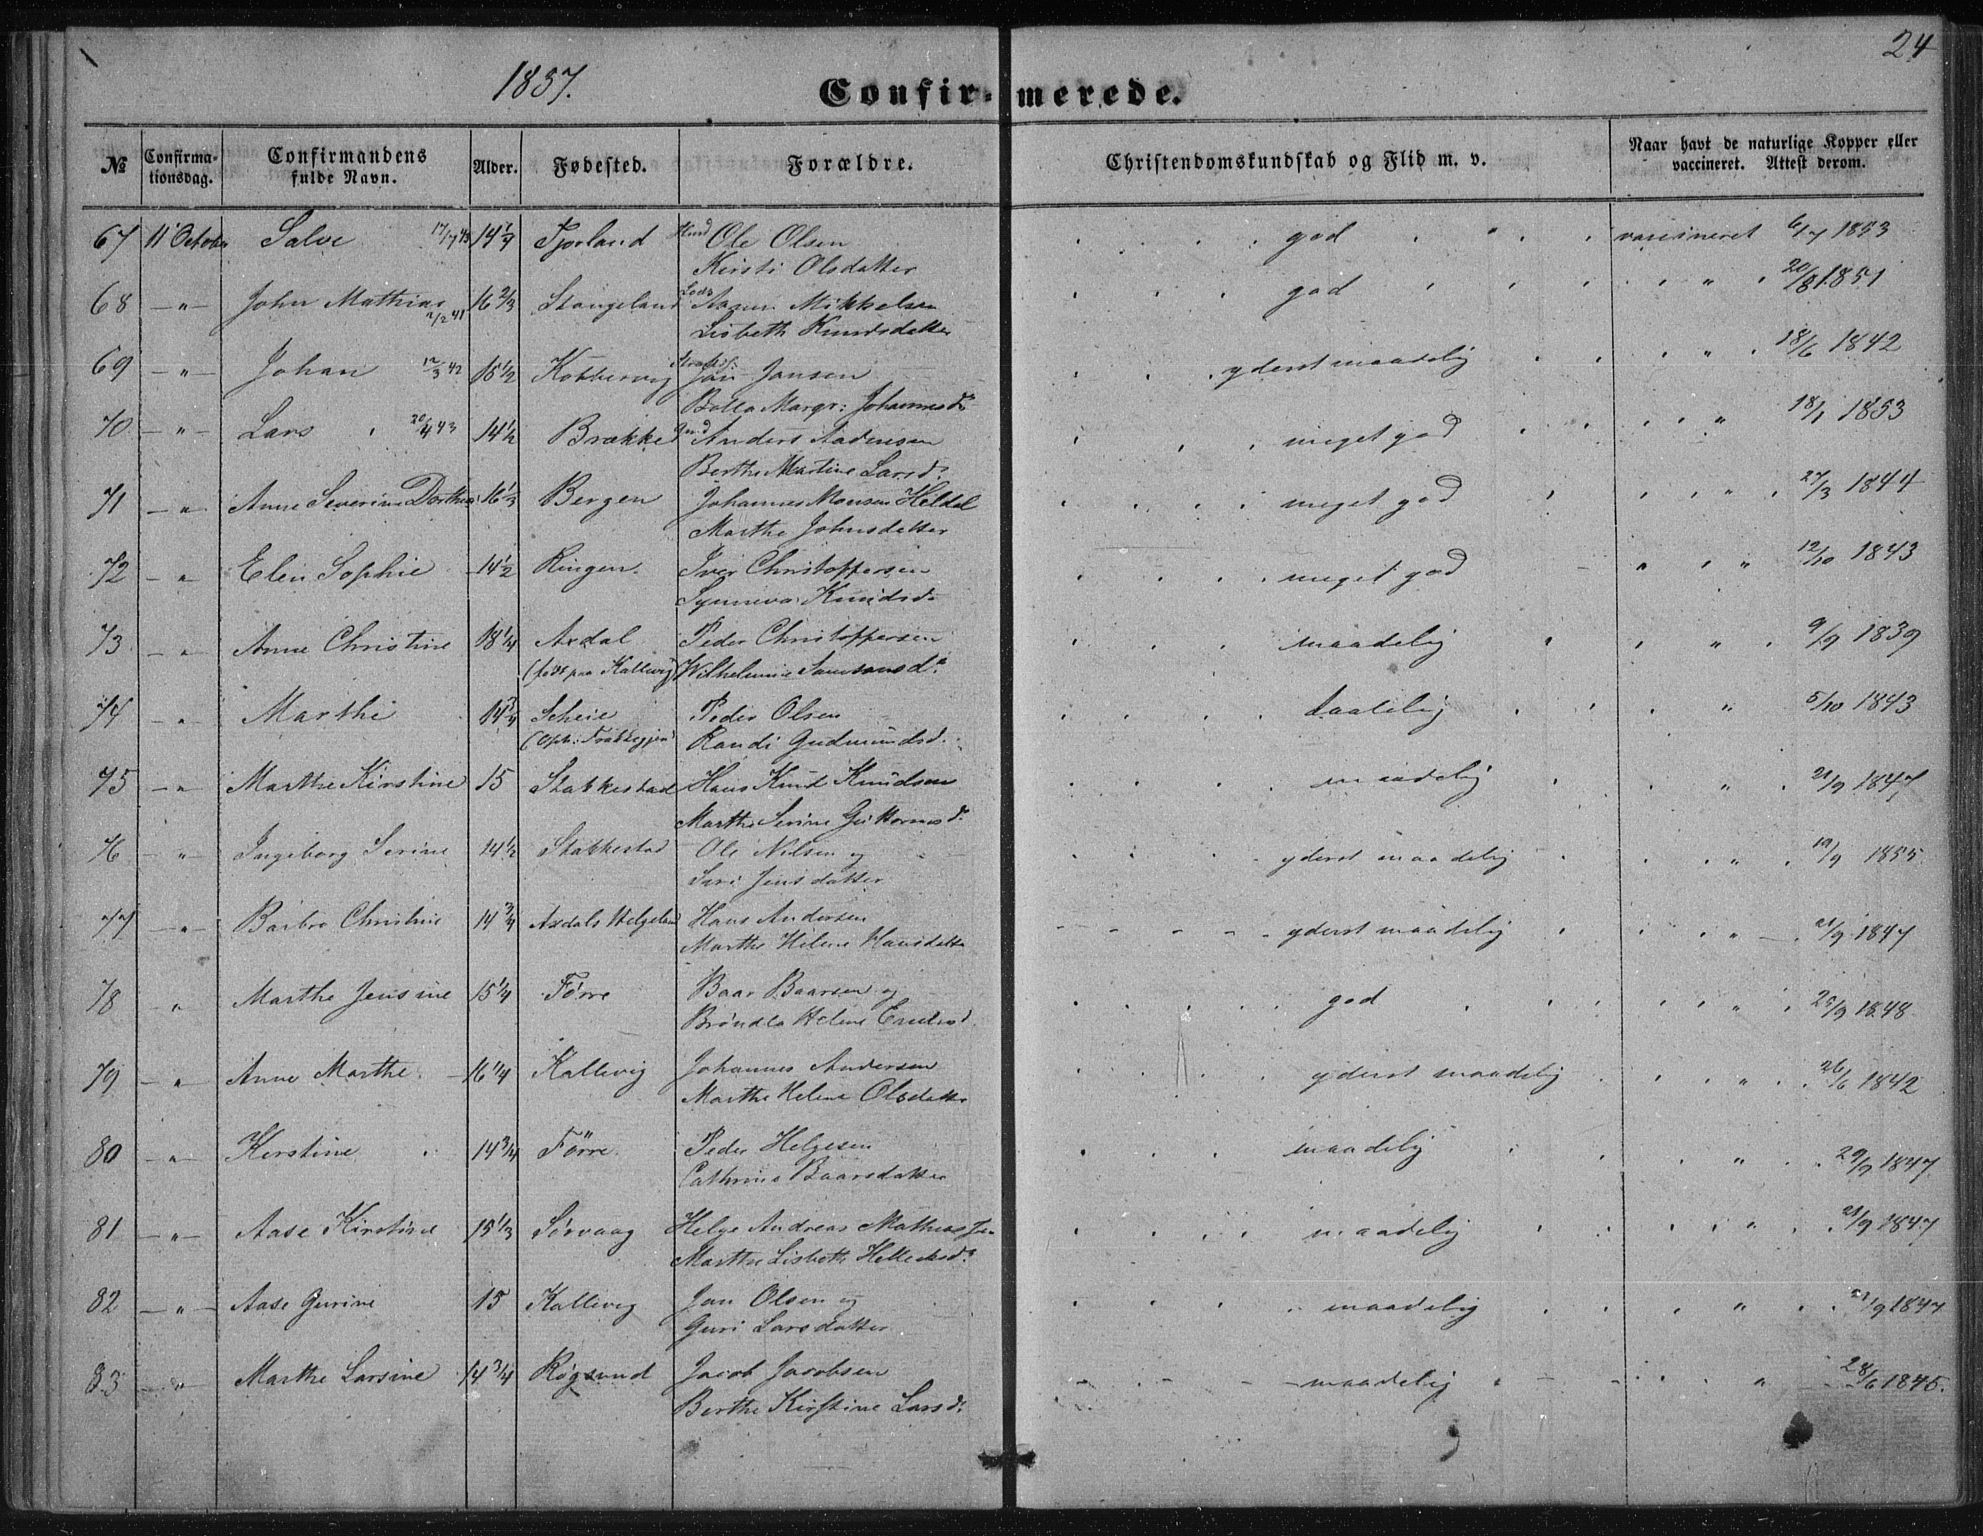 24
1857.
Confirmerede.
№ Confirmationsdag. Confirmandens fulde Navn. Alder. Fødested. Forældre. Christendomskundskab og Flid m. v. Naar havt de naturlige Kopper eller vaccineret. Attest derom.
67 11' October Salve 14 Tjorland Ole Olsen god vaccineret 6/7 1853
Kirsti Olsdatter
68 — " — John Mathias 2/2 41 16 2/3 Stangeland Mikkelsen god " 20/8 1851
Lisbeth Knudsdatter
69 — " — Johan 12/3 42 15 1/2 Kobbervig Jan Jansen yderst maadelig " 18/6 1842
Margr: Johannesd.
70 — " — Lars 20/4 43 14 1/2 Brække Anders meget god " 18/1 1853
Berthe Martine Larsd.
71 — " — Anne Severine Dorthea 16 1/3 Bergen Johannes Monsen Heldal meget god " 27/3 1844
Marthe Johnsdatter
72 — " — Elen Sophie 14 1/2 Ringen. Iver Christoffersen meget god " " 12/10 1843
Synneva Knudsd.
73 — " — Anne Christine 18 1/4 Axdal Peder Christoffersen maadelig " 9/9 1839
(født paa Kallevig) Wilhelmine Samsonsd.
74 " Marthe 14 3/4 Scheie Peder Olsen taalelig " 5/10 1843
Randi Gudmundsd.
75 — " Marthe Kirstine 15 Stakkestad Hans Knud Knudsen maadelig " 21/9 1847
Marthe Serine Guttormsd.
76 — " — Ingeborg Serine 14 1/2 Stakkestad Ole Nilsen og yderst maadelig " 19/9 1855
Siri Jensdatter
77 — " — Barbro Christine 14 3/4 Axdals Helgeland Hans Andersen yderst maadelig " 21/9 1847
Marthe Helene Hansdatter
78 " Marthe Jensine 15 1/4 Førre Baar Baarsen og god " 25/9 1848
Brøndla Helene
79 — " Anne Marthe 16 1/4 Kallevig Johannes Andersen yderst maadelig " 26/6 1842
Marthe Helene Olsdatter
80 — " — Kirstine 14 3/4 Førre Peder Helgesen maadelig " 29/9 1847
Cathrine Baarsdatter
81 — " — Aase Kirstine 15 1/3 Sørvaag Helge Andreas Mathiassen maadelig " 21/9 1847
Marthe Lisbeth
82 — " — Aase Gurine 15 Kallevig Jan Olsen og maadelig " 21/9 1847
Guri Larsdatter
83 — " — Marthe Larsine 14 3/4 Røgsund Jacob Jacobsen maadelig " 28/6 1845.
Berthe Kirstine Larsd.